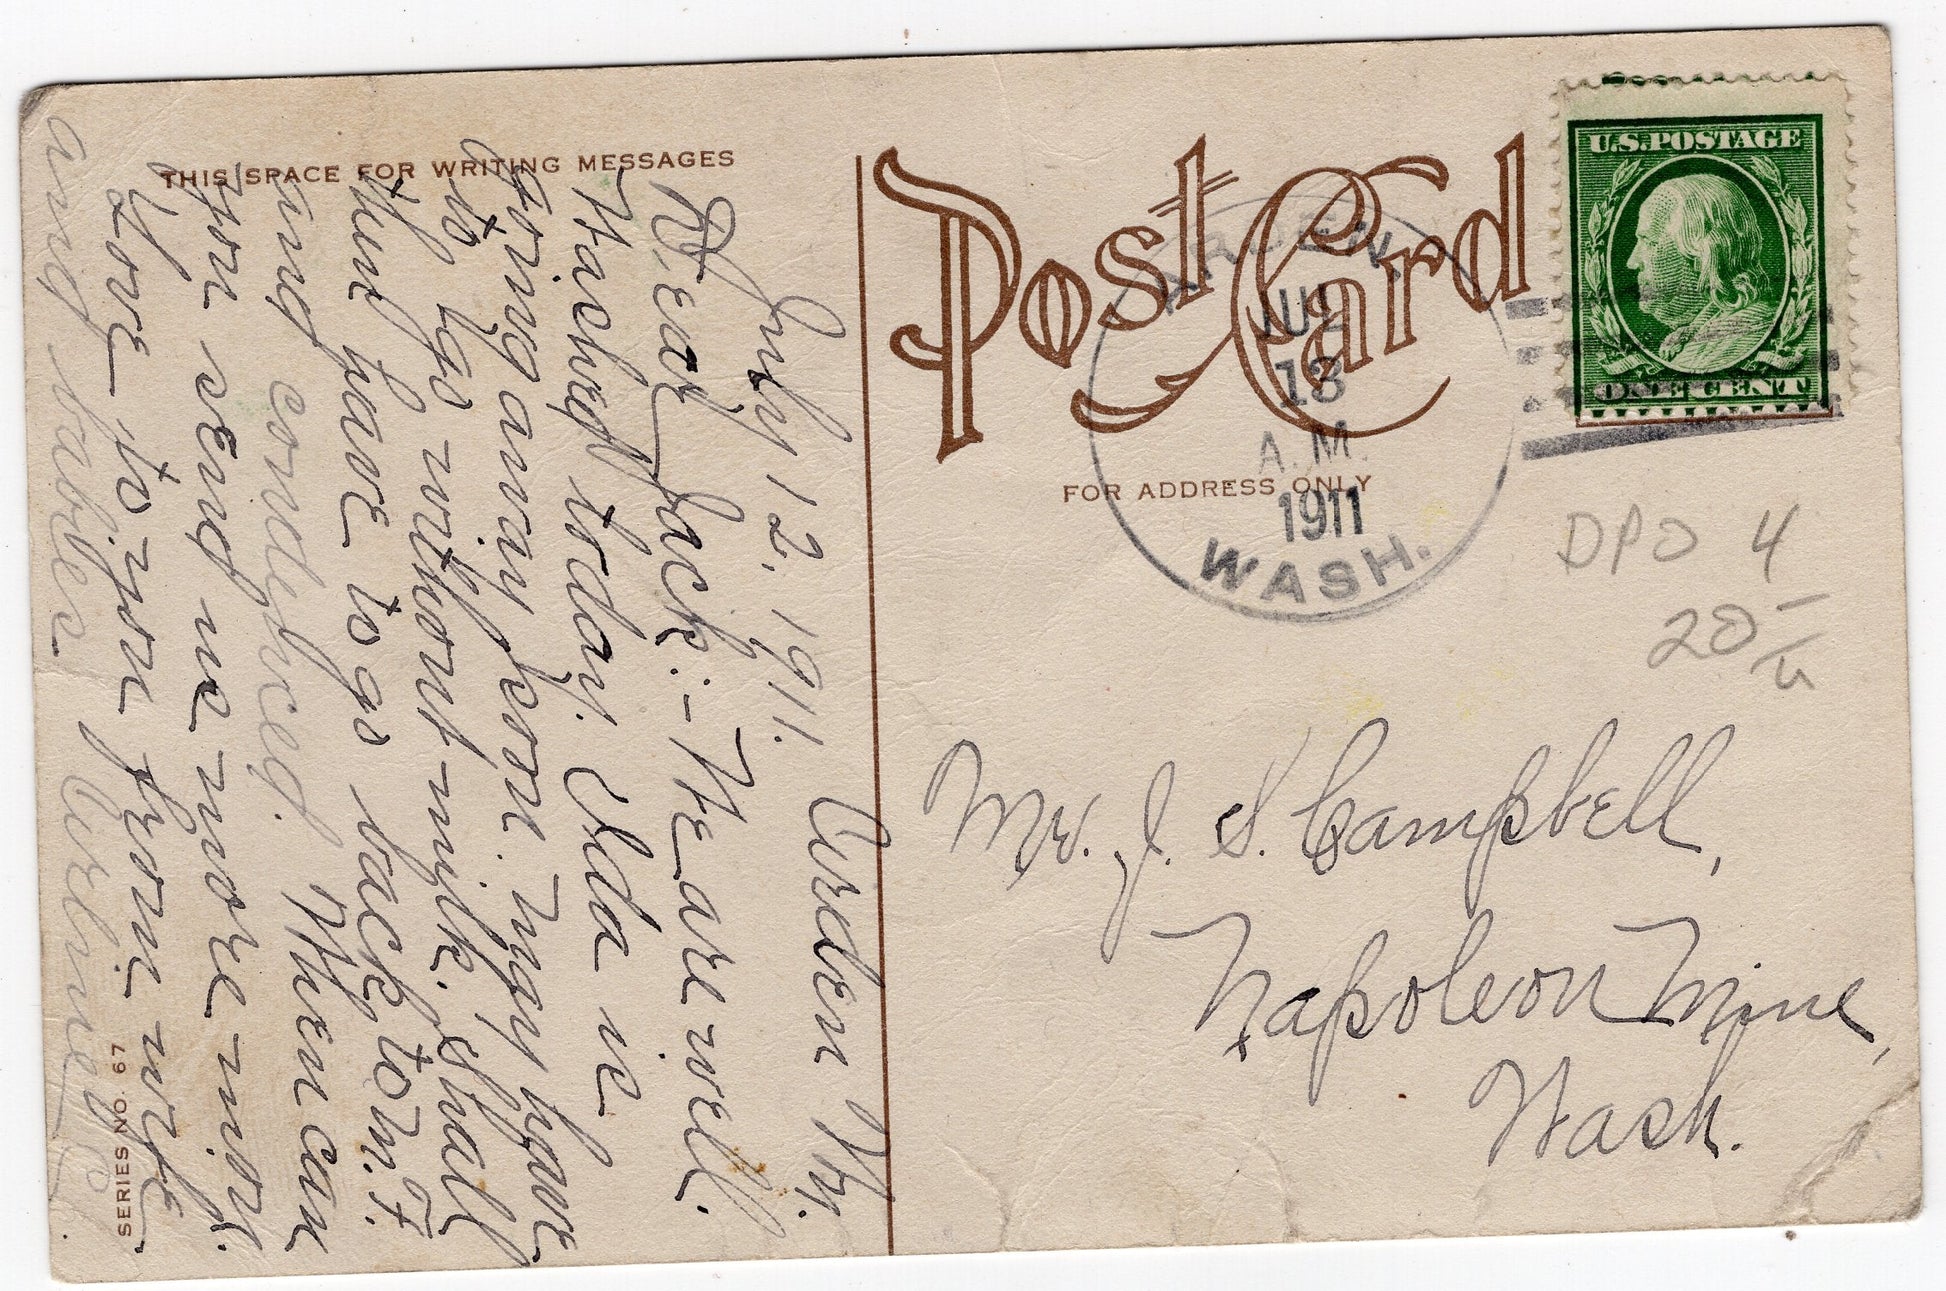 THIS SPACE FOR WRITING MESSAGES
July 12, 1911. Arden Wn.
Dear Jack:- We are well.
Washed today. Ida is
going away soon. may have
to go without milk. Shall
have to go back to
When can
you send me more mon.
Love to you from wife
and babies.
SERIES NO. 67
Post Card
FOR ADDRESS ONLY
ARDEN,
JUL
13
A.M.
1911
WASH.
U.S. POSTAGE
ONE CENT
DPO 4
20
Mr. J. S. Campbell,
Napoleon Mine,
Wash.